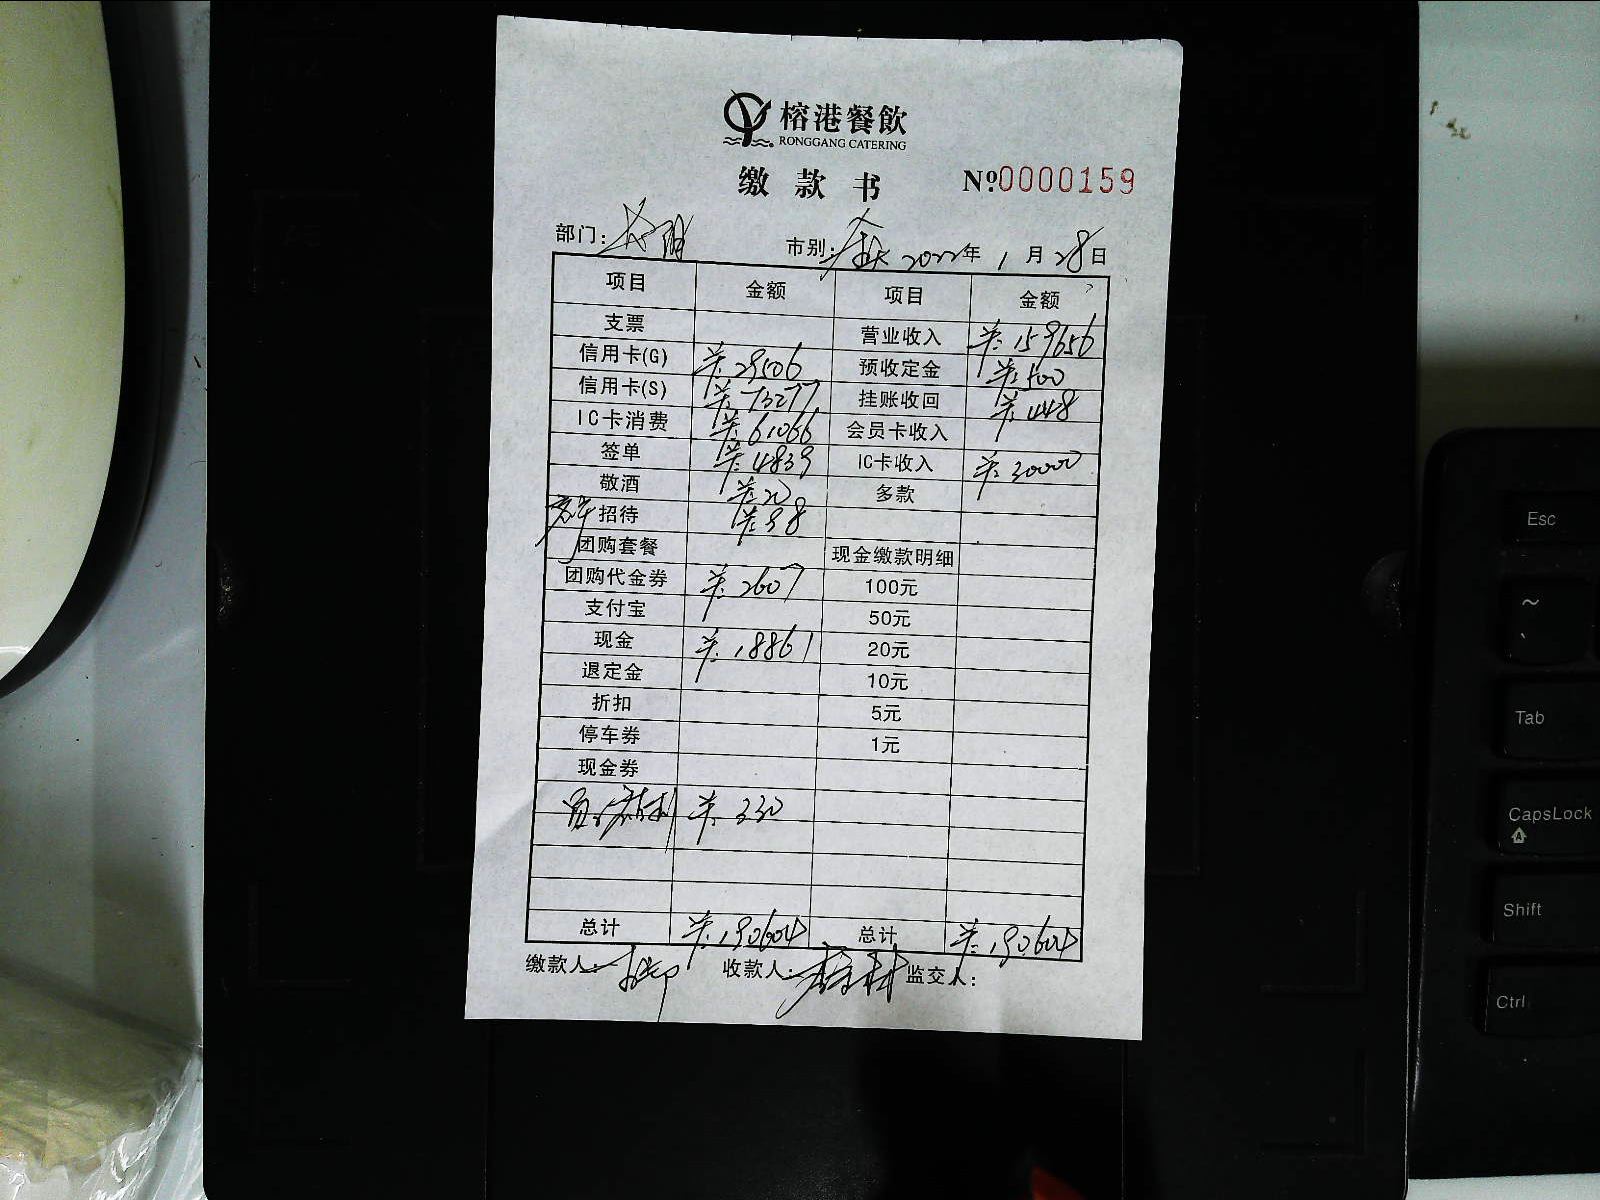 榕港餐飲
RONGGANG CATERING
缴款书 №0000159
部门: 市别: 全天 2022年 1月28日
项目 金额 项目 金额
支票 营业收入 ¥:159656
信用卡(G) ¥:29506 预收定金 ¥:500
信用卡(S) ¥:73277 挂账收回 ¥:448
IC卡消费 ¥:61066 会员卡收入
签单 ¥:4839 IC卡收入 ¥:30000
敬酒 ¥:20 多款
招待 ¥:98
团购套餐 现金缴款明细
团购代金券 ¥:2607 100元
支付宝 50元
现金 ¥:18861 20元
退定金 10元
折扣 5元
停车券 1元
现金券
¥:330
总计 ¥:190604 总计 ¥:190604
缴款人: 收款人: 监交人:
Esc
~
`
Tab
CapsLock
A
Shift
Ctrl